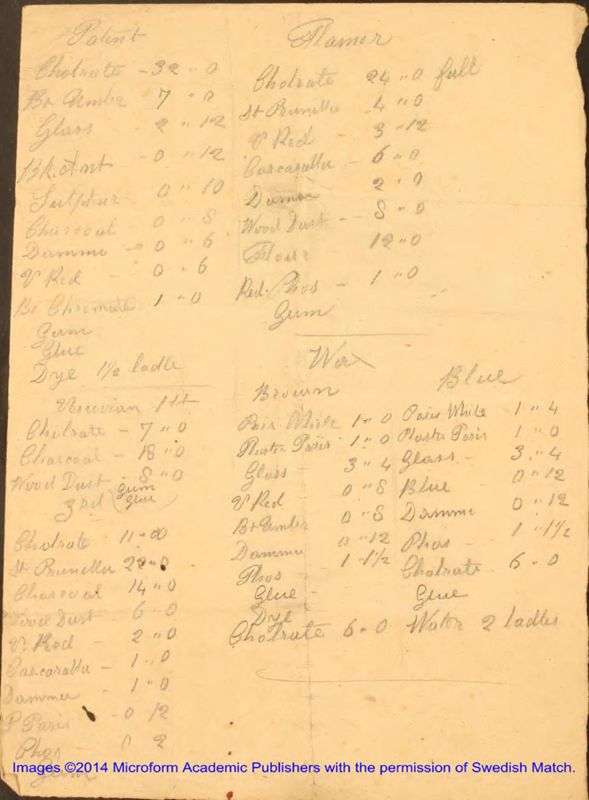 Patent
Cholrate - 32 " 0
Bt Umber 7 " 0
Glass 2 " 12
Bk. Ant - 0 " 12
Sulphur 0 " 10
Charcoal - 0 " 8
Dammer - 0 " 6
V Red - 0 " 6
Bi Chromate 1 " 0
Gum
Glue
Dye 1½ ladle
Vesuvian 1st
Cholrate - 7 " 0
Charcoal - 18 " 0
Wood Dust - 8 " 0
3rd (Gum Glue)
Cholrate 11 " 0
St Prunella 22 " 0
Charcoal 14 " 0
Wood Dust 6 " 0
V. Red - 2 " 0
Cascarilla - 1 " 0
Dammer - 1 " 0
P Paris - 0 12
Phos - 0 2
Gum
Flamer
Cholrate 24 " 0 full
St Prunella 4 " 0
V Red - 3 " 12
Cascarilla - 6 " 0
Dammer 2 " 0
Wood Dust - 8 " 0
Flour 12 " 0
Red. Phos - 1 " 0
Gum
Wax
Brown
Paris White 1 " 0
Plaster Paris 1 " 0
Glass - 3 " 4
V Red 0 " 8
Bt Umber 0 " 8
Dammer 0 " 12
Phos - 1 " 1½
Glue -
Dye
Cholrate 6 " 0
Blue
Paris White 1 " 4
Plaster Paris 1 " 0
Glass - 3 " 4
Blue 0 " 12
Dammer 0 " 12
Phos - 1 " 1½
Cholrate 6 " 0
Glue
Water 2 ladles
Images ©2014 Microform Academic Publishers with the permission of Swedish Match.